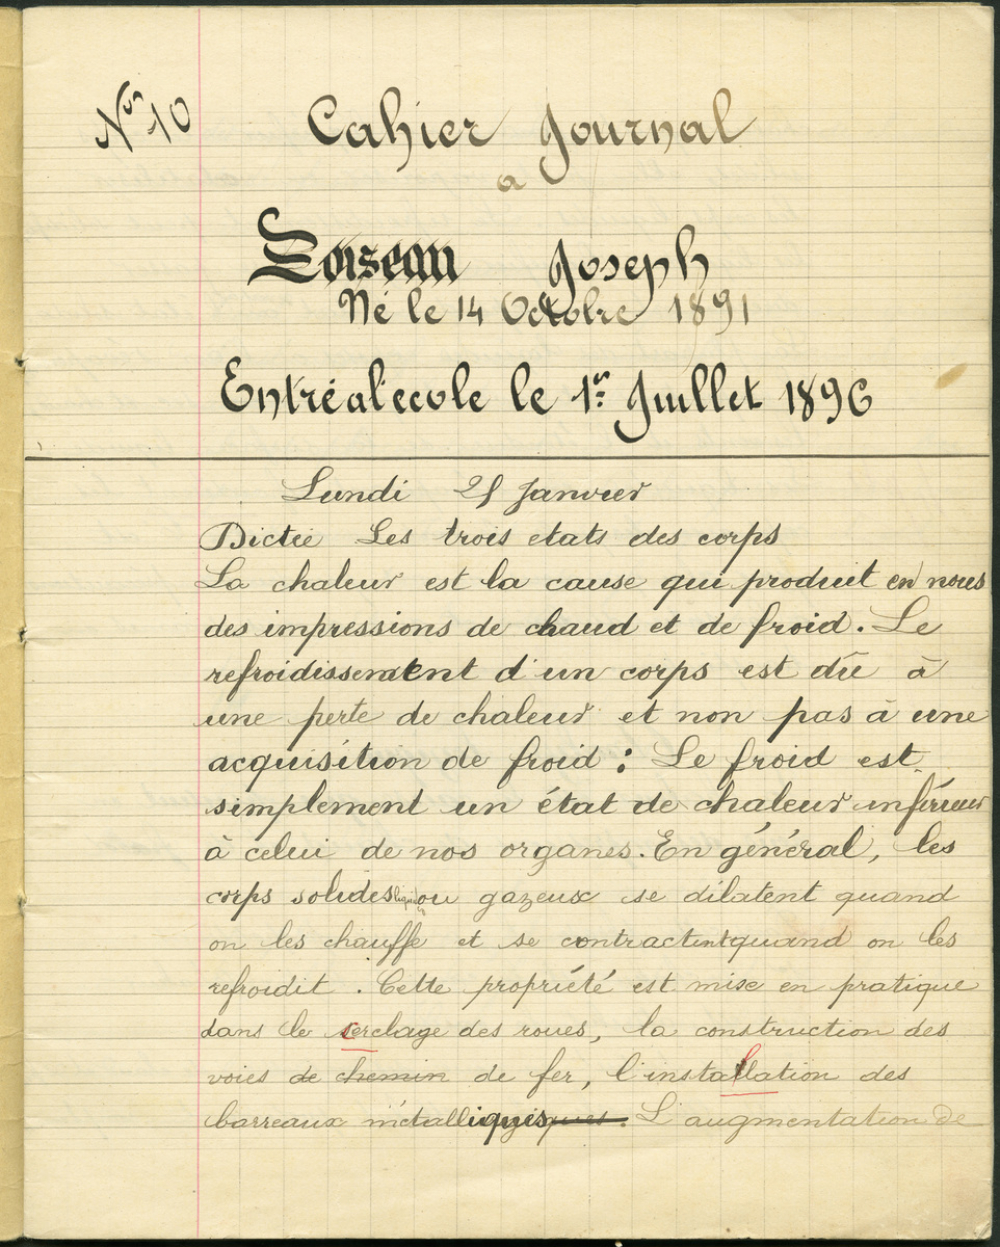 Nº 10
Cahier Journal
a
Loiseau Joseph
Né le 14 Octobre 1891
Entré a l'ecole le 1er Juillet 1896
Lundi Janvier
Dictée Les trois etats des corps
La chaleur est la cause qui produit en nous
des impressions de chaud et de froid. Le
refroidissement d'un corps est dû à
une perte de chaleur et non pas à une
acquisition de froid : Le froid est
simplement un état de chaleur inférieur
à celui de nos organes. En général, les
corps solides liquides ou gazeux se dilatent quand
on les chauffe et se contractent quand on les
refroidit . Cette propriété est mise en pratique
dans le cerclage des roues, la construction des
voies de chemin de fer, l'installation des
barreaux métalliques ques. L'augmentation de